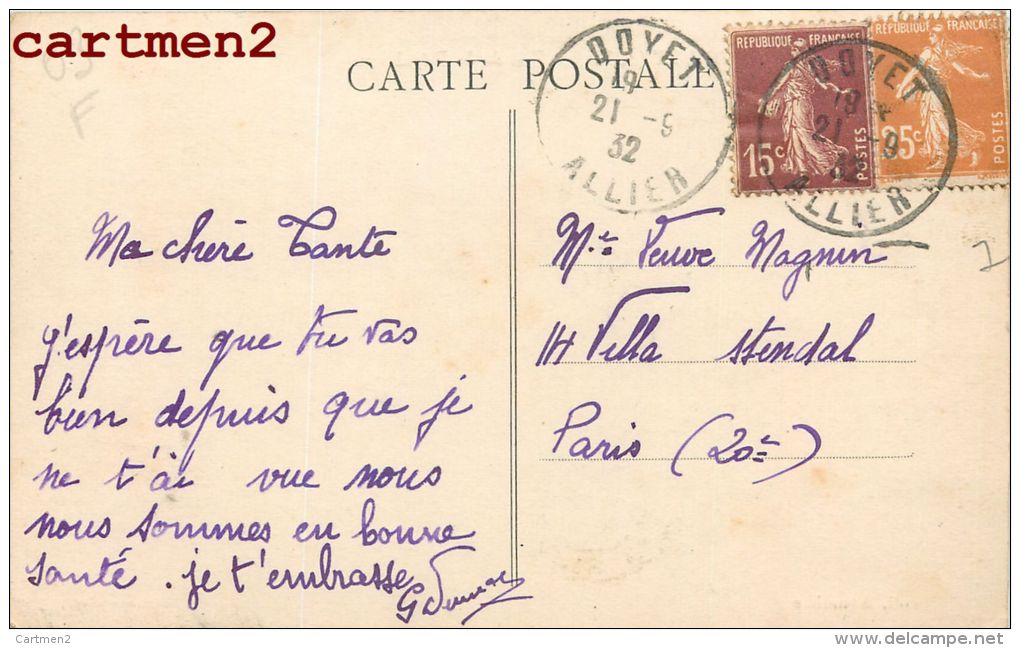 cartmen2
03
F
CARTE POSTALE
DOYET
19
21 -9
32
ALLIER
REPUBLIQUE FRANÇAISE
15c
POSTES
DOYET
19
21 -9
32
ALLIER
REPUBLIQUE FRANÇAISE
25c
POSTES
Ma chère Tante
j'espère que tu vas
bien depuis que je
ne t'ai vue nous
nous sommes en bonne
santé. je t'embrasse
Mme Veuve Magnin
14 Villa Stendal
Paris (20e)
1
Cartmen2
www.delcampe.net